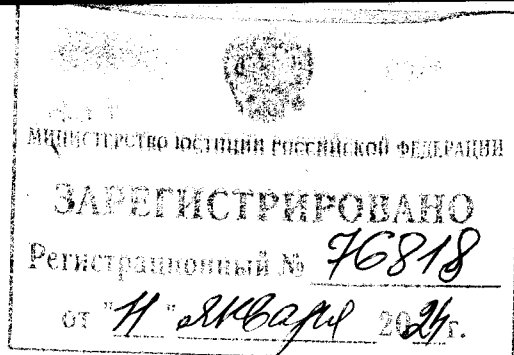 МИНИСТЕРСТВО ЮСТИЦИИ РОССИЙСКОЙ ФЕДЕРАЦИИ
ЗАРЕГИСТРИРОВАНО
Регистрационный № 76818
от "11" января 2024г.